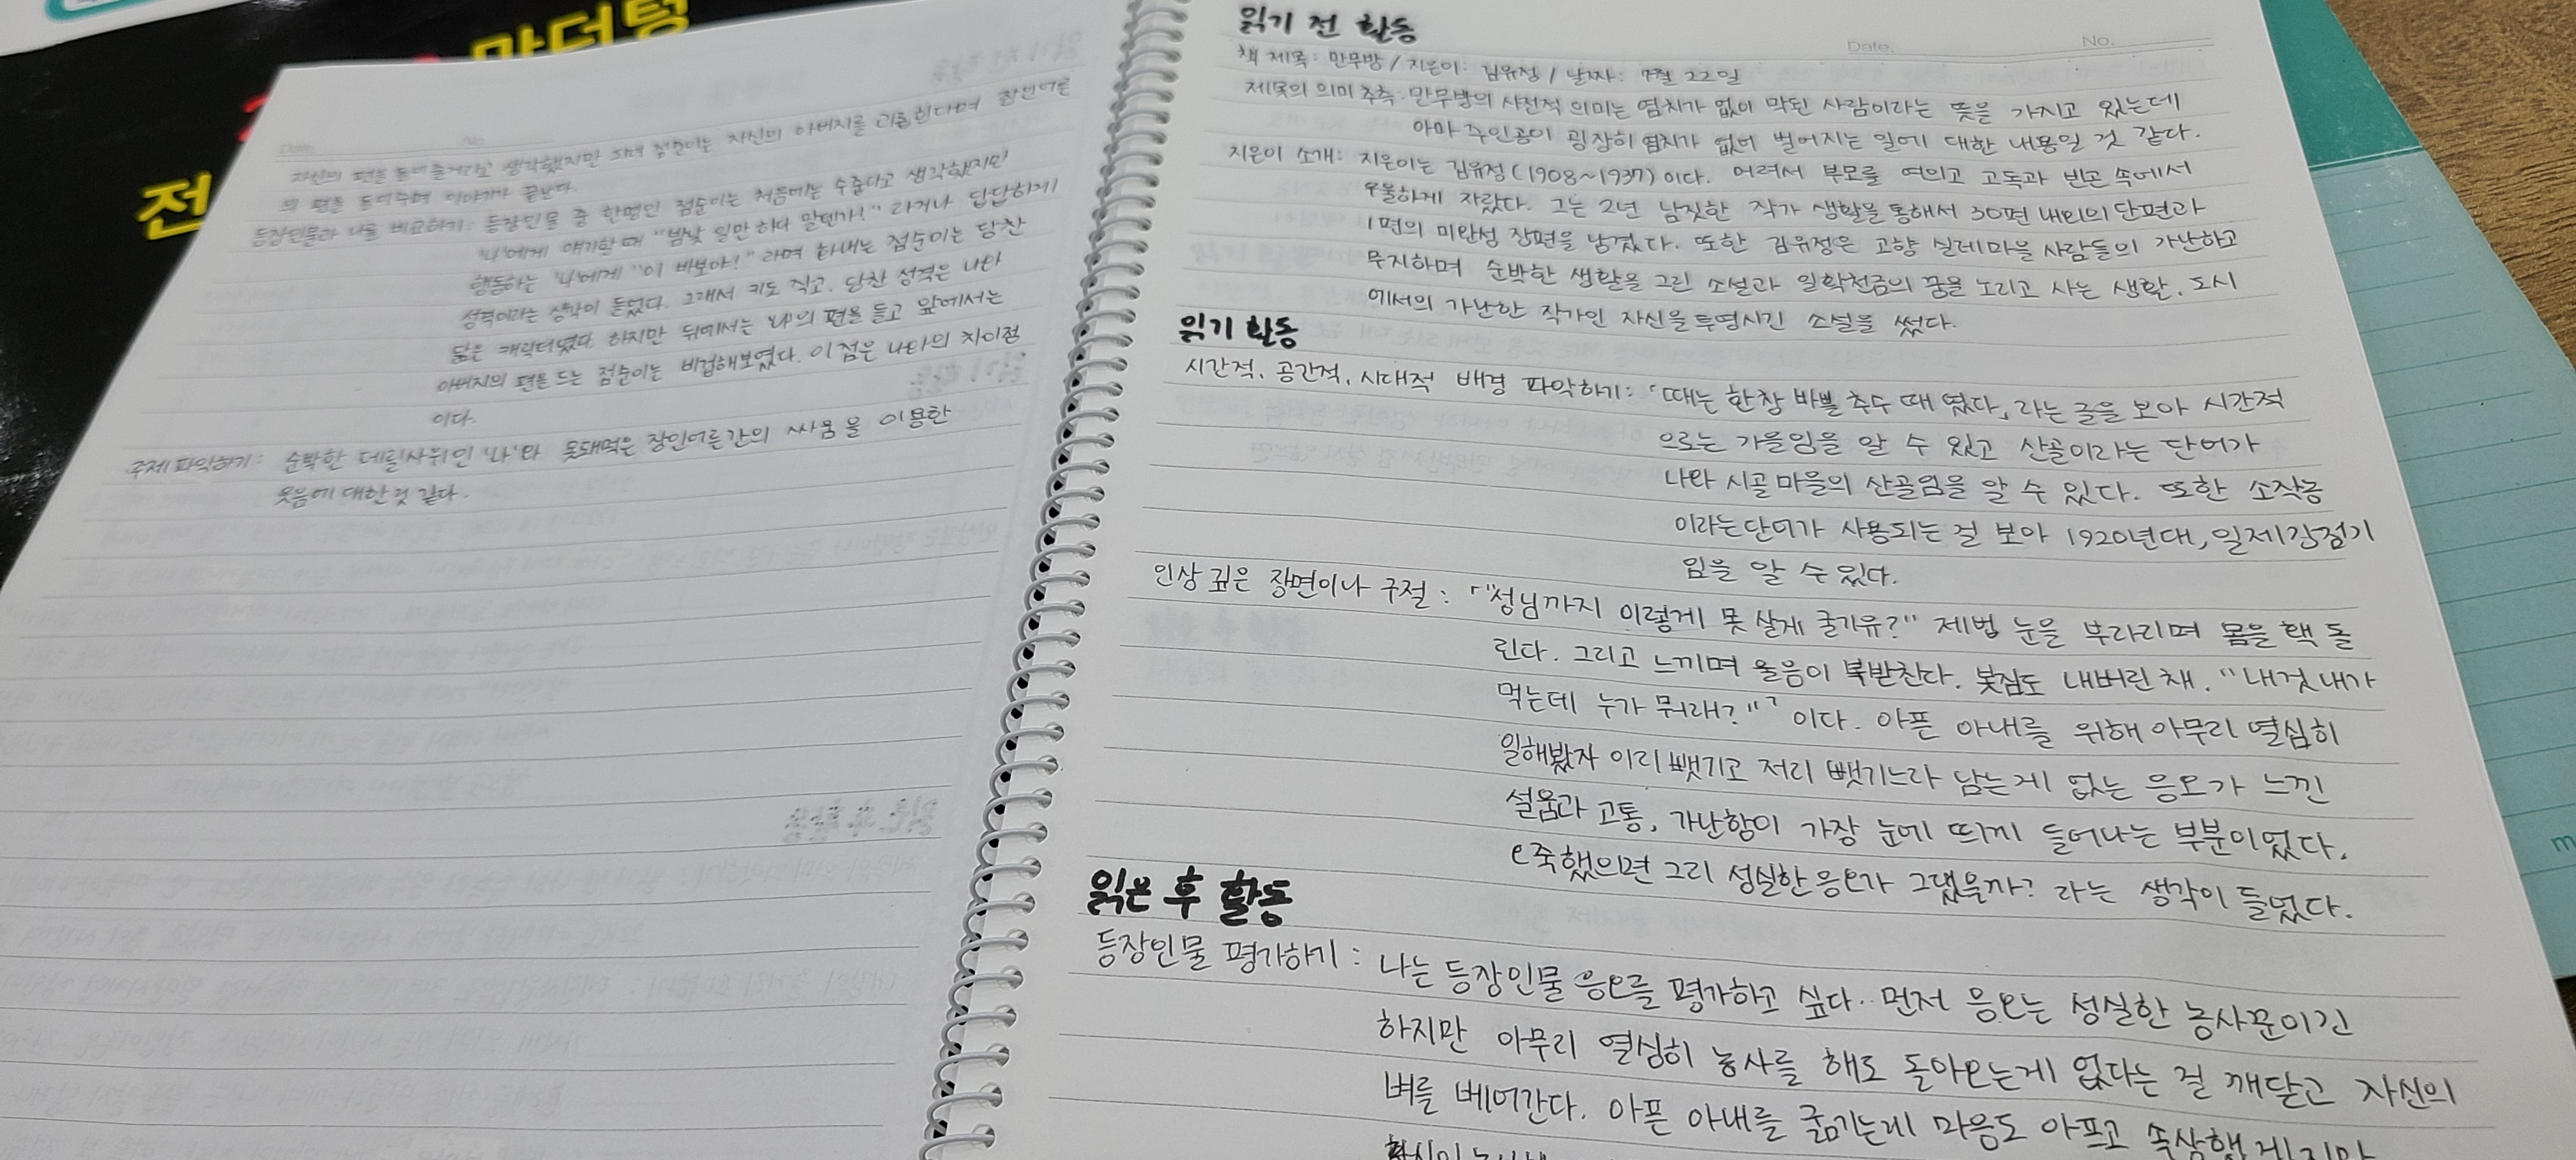 막더텅
전
Date.
No.
자신의 편을 들어줄거라고 생각했지만 되려 점순이는 자신의 아버지를 괴롭힌다며 장인어른
의 편을 들어주며 이야기가 끝난다.
등장인물과 나를 비교하기: 등장인물 중 한명인 점순이는 처음에는 수줍다고 생각했지만
'나'에게 얘기할 때 "밤낮 일만 하다 말텐가!" 라거나 답답하게
행동하는 '나'에게 "이 바보야!" 라며 화내는 점순이는 당찬
성격이라는 생각이 들었다. 그래서 키도 작고, 당찬 성격은 나와
닮은 캐릭터였다. 하지만 뒤에서는 '나'의 편을 들고 앞에서는
아버지의 편을 드는 점순이는 비겁해보였다. 이 점은 나와의 차이점
이다.
주제 파악하기: 순박한 데릴사위인 '나'와 못돼먹은 장인어른간의 싸움을 이용한
웃음에 대한 것 같다.
읽기 전 활동
Date.
No.
책 제목: 만무방 / 지은이: 김유정 / 날짜: 7월 22일
제목의 의미 추측: 만무방의 사전적 의미는 염치가 없이 막된 사람이라는 뜻을 가지고 있는데
아마 주인공이 굉장히 염치가 없어 벌어지는 일에 대한 내용일 것 같다.
지은이 소개: 지은이는 김유정(1908~1937)이다. 어려서 부모를 여의고 고독과 빈곤 속에서
우울하게 자랐다. 그는 2년 남짓한 작가 생활을 통해서 30편 내외의 단편과
1편의 미완성 장편을 남겼다. 또한 김유정은 고향 실레마을 사람들의 가난하고
무지하며 순박한 생활을 그린 소설과 일확천금의 꿈을 노리고 사는 생활, 도시
에서의 가난한 작가인 자신을 투영시킨 소설을 썼다.
읽기 활동
시간적, 공간적, 시대적 배경 파악하기: 「때는 한창 바쁠 추수 때였다」라는 글을 보아 시간적
으로는 가을임을 알 수 있고 산골이라는 단어가
나와 시골 마을의 산골임을 알 수 있다. 또한 소작농
이라는 단어가 사용되는 걸 보아 1920년대, 일제강점기
임을 알 수 있다.
인상 깊은 장면이나 구절: 「"성님까지 이렇게 못 살게 굴기유?" 제법 눈을 부라리며 몸을 홱 돌
린다. 그리고 느끼며 울음이 복받친다. 봇짐도 내버린 채. "내것 내가
먹는데 누가 뭐래?"」이다. 아픈 아내를 위해 아무리 열심히
일해봤자 이리 뺏기고 저리 뺏기느라 남는게 없는 응오가 느낀
설움과 고통, 가난함이 가장 눈에 띄게 들어나는 부분이었다.
오죽했으면 그리 성실한 응오가 그랬을까? 라는 생각이 들었다.
읽은 후 활동
등장인물 평가하기: 나는 등장인물 응오를 평가하고 싶다. 먼저 응오는 성실한 농사꾼이긴
하지만 아무리 열심히 농사를 해도 돌아오는게 없다는 걸 깨닫고 자신의
벼를 베어간다. 아픈 아내를 굶기는게 마음도 아프고 속상했겠지만